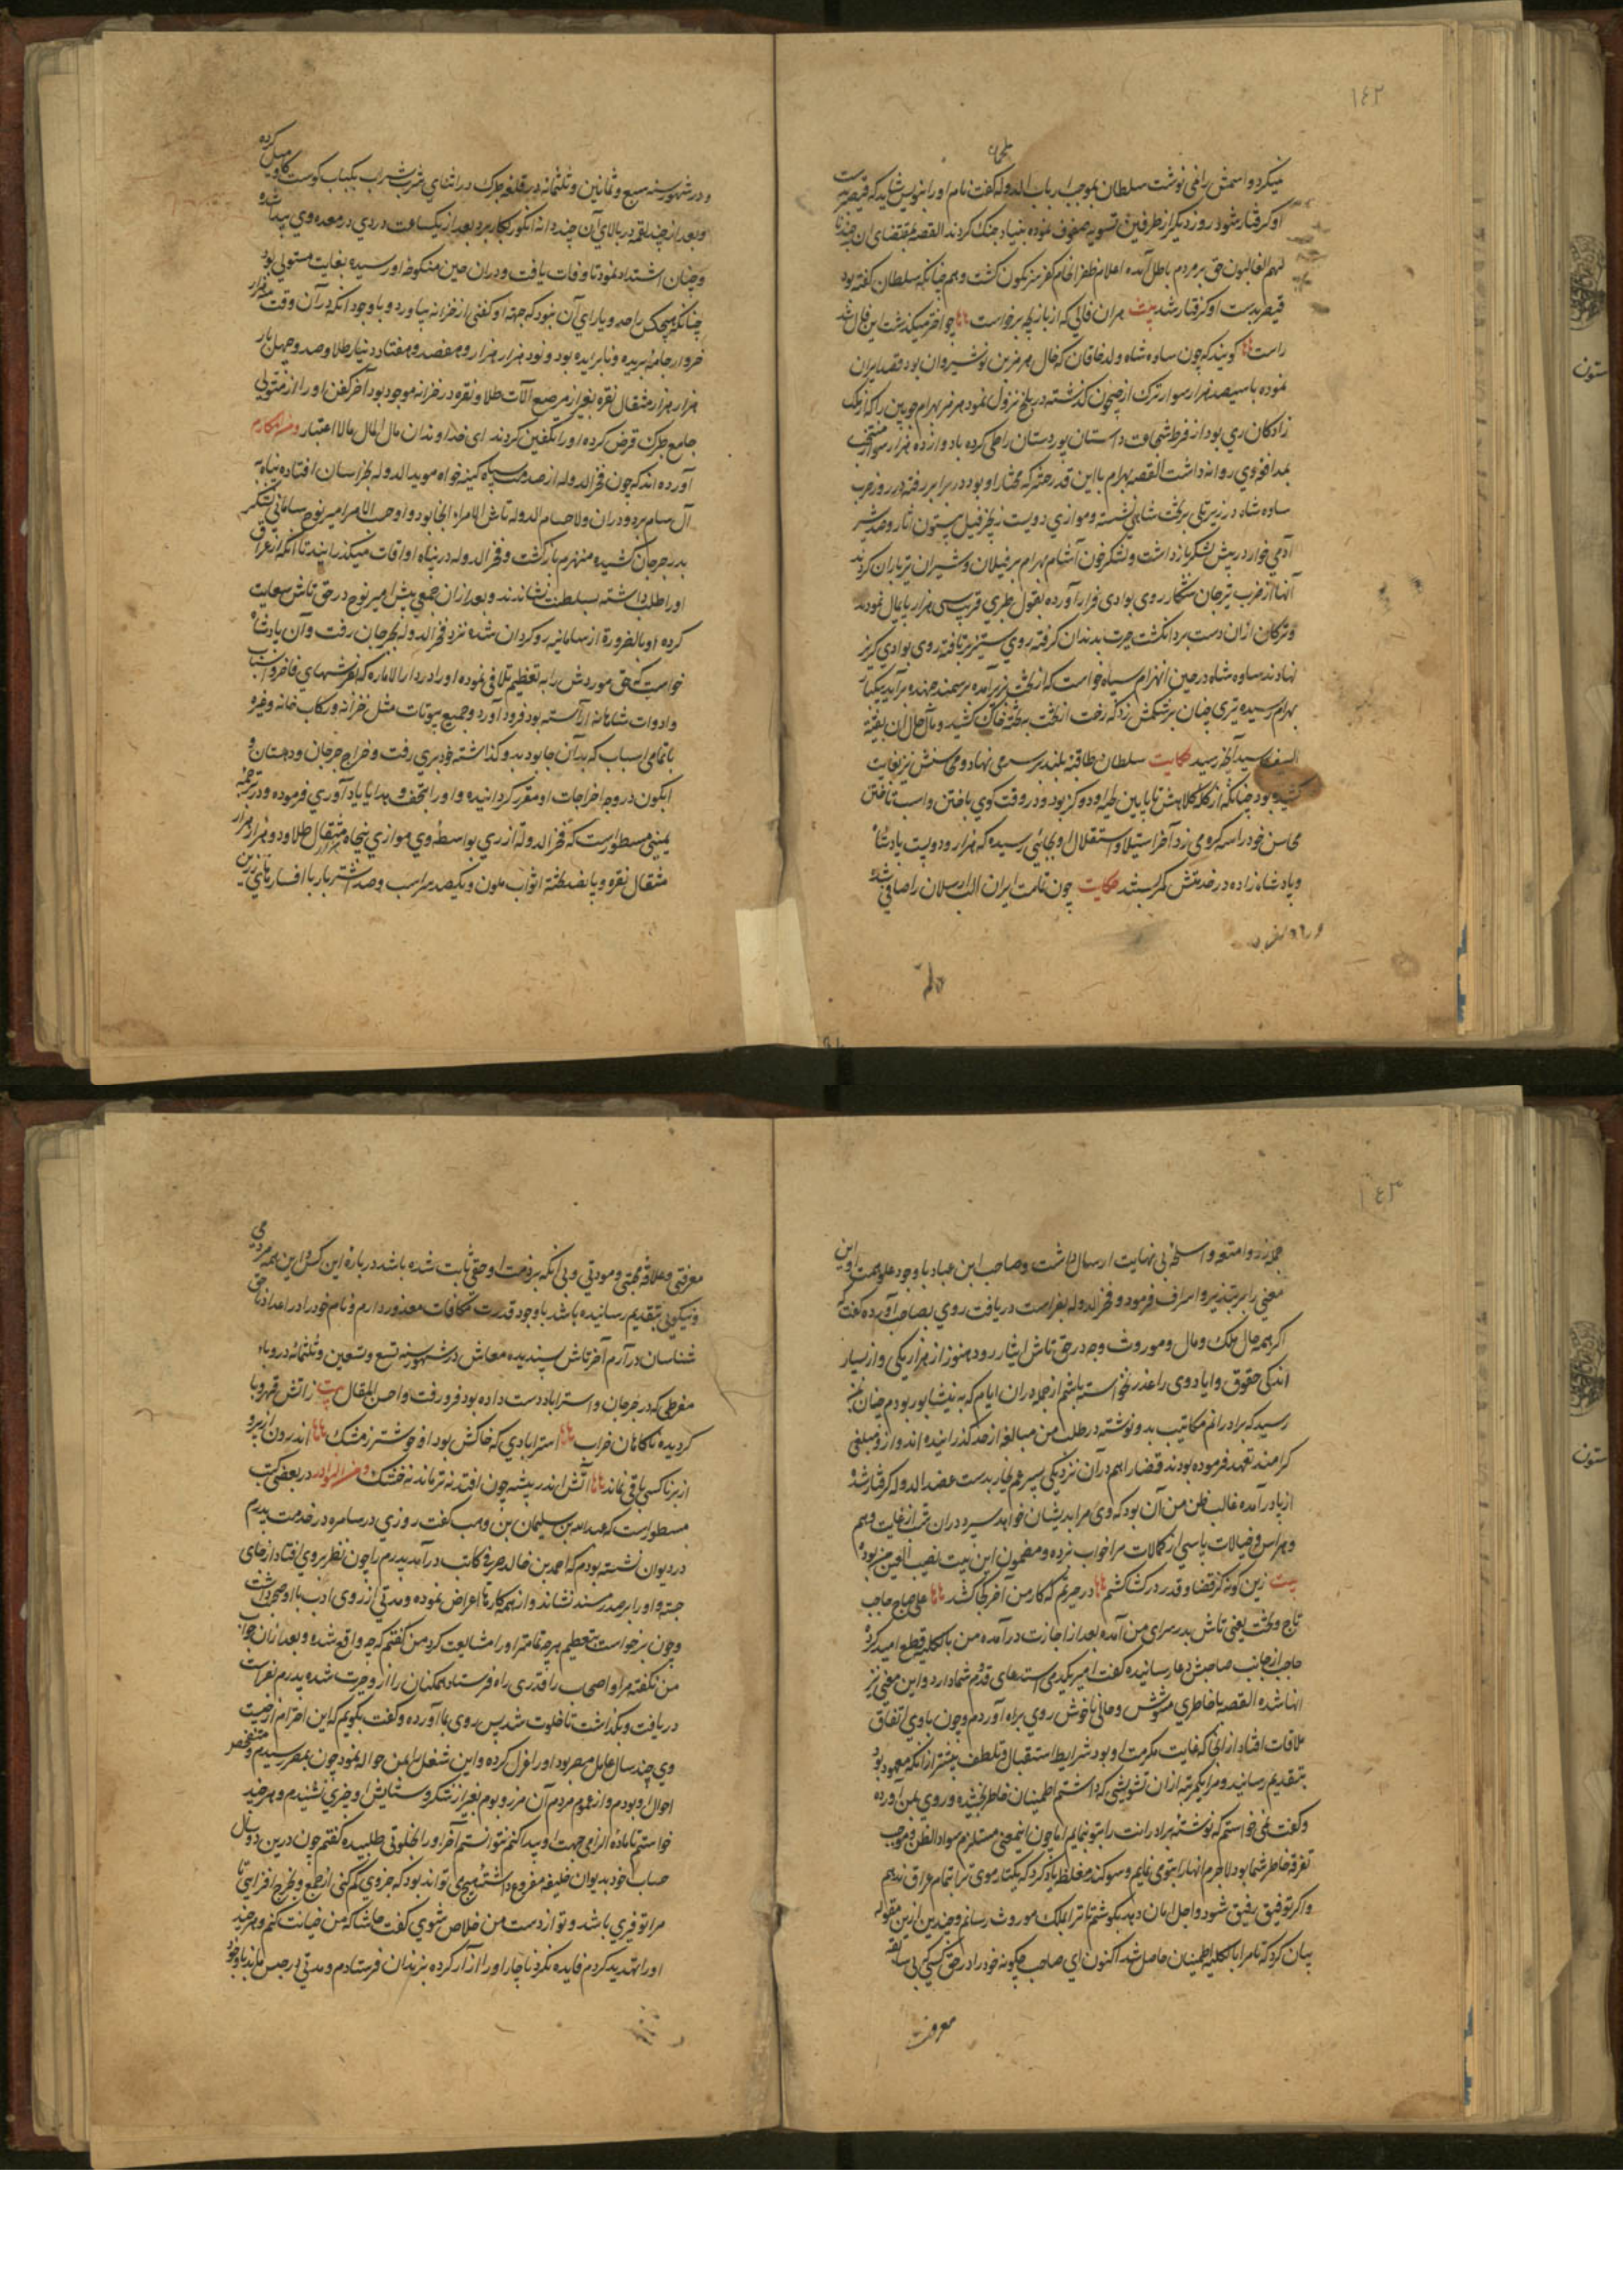 ١٤٢
میکرد و اسمش را نمی نوشت سلطان بموجب ارباب الدوله گفت نام او را بنویس شاید که قیصر بدست
او گرفتار شود روز دیگر از طرفین تسویه صفوف نموده بنیاد جنگ کردند القصه بمقتضای ان جندنا
لهم الغالبون حق بر مردم باطل آمده اعلام ظفر انجام کفر سرنگون گشت و هم چنانکه سلطان گفته بود
قیصر بدست او گرفتار شد بیت بران فالی که از بازیچه برخواست چو اختر میگذشت این فال شد
راست گویند که چون ساوه شاه ولد خاقان که خال هرمز بن نوشیروان بود قصد ایران
نموده با سیصد هزار سوار ترک از جیحون گذشته در بلخ نزول نمود هرمز بهرام چوبین را که از ملک
زادگان ری بود از فرط شجاعت داستان پور دستان را طی کرده با دوازده هزار سوار منتخب
بمدافعه وی روانه داشت القصه بهرام با این قدر حشر که مختار او بود در برابر رفته در روز حرب
ساوه شاه در زیر تلی بر تخت شاهی نشسته و موازی دویست زنجیر فیل بیستون آثار و صد شیر
آدمی خوار در پیش لشکر باز داشت و لشکر خون آشام بهرام بر فیلان و شیران تیرباران کردند
آنها از ضرب تیر جان شکار روی بوادی فرار آورده بقول طبری قریب سی هزار پایمال نمودند
و ترکان ازان دست برد انگشت حیرت بدندان گرفته روی ستیز برتافته روی بوادی گریز
نهادند ساوه شاه در حین انهزام سپاه خواست که از تخت بزیر آمده بر سمند جهنده برآید یکبار
بهرام رسیده تیری چنان بر شکمش زد که رخت از تخت به تخته خاک کشید و مآل حال ان بقیة
السیف رسید آنچه رسید حکایت سلطان طاقیه بلند بر سر می نهاد و محاسنش بغایت
کشیده بود چنانکه از کله کلاهش تا پایین لحیه او دو گز بود و در وقت گوی باختن و اسب تاختن
محاسن خود را سه گره می زد آخر استیلا و استقلال او بجائی رسیده که هزار و دویست پادشاه
و پادشاه زاده در خدمتش کمر بستند حکایت چون تمامت ایران الب ارسلان را صافی شد
و در شهور سنه سبع و ثمانین و ثلثمائه در قلعه طبرک در اثنای شرب شراب بکباب گوشت گاو میل کرده
و بعد از چند لقمه در بالای آن چند دانه انگور بکار برد بعد از یکساعت دردی در معده وی پیدا شده
و چنان اشتداد نمود تا وفات یافت و دران حین منکوحه او سیده بغایت مستولی بود
چنانکه هیچکس را حد و یارای آن نبود که جهته او کفنی از خزانه بیاورد و با وجود آنکه در آن وقت سه هزار
خروار جامه بریده و نابریده بود و نود هزار هزار و هفصد و هفتاد دینار طلا و صد و چهل بار
هزار هزار مثقال نقره بغیر از مرصع آلات طلا و نقره در خزانه موجود بود آخر کفن او را از متولی
جامع طبرک قرض کرده او را تکفین کردند ای خداوندان مال المال مالا اعتبار و من المکارم
آورده اند که چون فخر الدوله از صدمه سپاه کینه خواه مویدالدوله بخراسان افتاده پناه به
آل سامان برد و دران ولا حسام الدوله تاش الامراء انجا بود و او حسب الامر امیر نوح سامانی لشکر
بدر جرجان کشیده منهزم بازگشت و فخر الدوله در پناه او اوقات میگذرانید تا انکه از عراق
او را طلب داشته بسلطنت نشاندند و بعد ازان جمعی پیش امیر نوح در حق تاش سعایت
کرده او بالضرورة از سامانیه روگردان شده نزد فخر الدوله بجرجان رفت و آن پادشاه
خواست که حق موردش را به تعظیم تلافی نموده او را در دار الاماره که بفرشهای فاخر و اسباب
و ادوات شاهانه آراسته بود فرود آورد و جمیع بیوتات مثل خزانه و رکاب خانه و غیره
با تمامی اسباب که بدآن جا بود بدو گذاشته خود بری رفت و خراج جرجان و دهستان و
ابکون در وجه اخراجات او مقرر گردانیده و او را بتحف و هدایا یادآوری فرموده و در ترجمه
یمینی مسطور است که فخر الدوله از ری بواسطه وی موازی پنجاه هزار مثقال طلا و دو هزار هزار
مثقال نقره و پانصد تخته اثواب ملون و یکصد سر اسب و صد اشتر بار با افسارهای زرین
١٤٣
جمله زر و امتعه و اسلحه بی نهایت ارسال داشت و صاحب ابن عباد با وجود علو همت این
معنی را بر تبذیر و اسراف فرمود و فخر الدوله بفراست دریافت روی بصاحب آورده گفت
اگر همه حال ملک و مال و موروث وجه در حق تاش ایثار رود هنوز از هزار یکی و از بسیار
اندکی حقوق و ایادی وی را عذر نخواسته باشم از جمله دران ایام که به نیشابور بودم چنان
رسید که برادرانم مکاتیب بدو نوشته در طلب من مبالغه از حد گذرانیده اند و از و مبلغی
کرامند تعهد فرموده بودند قضا را هم در آن نزدیکی پسر عم بختیار بدست عضد الدوله گرفتار شده
از پا درآمده غالب ظن من آن بود که وی مرا بدیشان خواهد سپرد دران شب از غایت وهم
و هراس و خیالات یاس از کمالات مرا خواب نبرده و مضمون این بیت نصب العین من بود
بیت زین گونه کز قضا و قدر در کشاکشم در حیرتم که کار من آخر کجا کشد علی الصباح حاجب
تاج و تخت یعنی تاش بدر سرای من آمده بعد از اجازت درآمده من بالکلیه قطع امید کرد
حاجب از جانب صاحبش دعا رسانیده گفت امیر بکدی استدعای قدوم شما دارد و این معنی نیز
انها شده القصه با خاطری مشوش و حالی ناخوش روی براه آوردم و چون با وی اتفاق
ملاقات افتاد از انجا که غایت مکرمت او بود شرایط استقبال و تلطف بیشتر از انکه معهود بود
بتقدیم رسانید و مرا یکمرتبه ازان تشویشی که داشتم اطمینان خاطر بخشیده و روی بمن آورده
و گفت نمی خواستم که نوشته برادرانت را بتو نمایم اما چون اینمعنی مستلزم سواد الظن و موجب
تفرقه خاطر شما بود لاجرم انها را بتو می نمایم و سوگند مغلظ یاد کرد که یکتار موی ترا بتمام عراق ندهم
و اگر توفیق رفیق شود و اجل امان دهد بکوشم تا ترا بملک موروث رسانم و چندین ازین مقوله
بیان کرد که تا مرا بالکلیه اطمینان حاصل شد اکنون ای صاحب چگونه خود را در حق کسی که بی سابقه
معرفت
معرفتی و علاقه محبتی و مودتی و بی آنکه بر ذمت او حقی ثابت شده باشد درباره این کس این همه مردمی
و نیکویی بتقدیم رسانیده باشد با وجود قدرت مکافات معذور دارم و نام خود را در اعداد ناحق
شناسان درآرم آخر تاش پسندیده معاش در شهور سنه تسع و تسعین و ثلثمائه در وباء
مفرطی که در جرجان و استراباد دست داده بود فرو رفت و احسن المقال بیت ز آتش قهر وبا
گردیده ناگاهان خراب استرابادی که خاکش بود او خوشتر ز مشک اندرون از پیر و
از برنا کسی باقی نماند آتش اندر بیشه چون افتد نه تر ماند نه خشک و من النوادر در بعضی کتب
مسطور است که عبدالله بن سلیمان بن وهب گفت روزی در سامره در خدمت پدرم
در دیوان نشسته بودم که احمد بن خالد صریفی کاتب درآمد پدرم را چون نظر بروی افتاد از جای
جسته و او را بر صدر مسند نشاند و از همه کارها اعراض نموده و مدتی از روی ادب با او صحبت داشت
و چون برخواست بتعظیم هرچه تمامتر او را مشایعت کرد من گفتم که چه واقع شده و بعد ازان جواب
من نگفته مرا و اصحاب را قدری راه فرستاد همکنان را ازو حیرت شده پدرم بفراست
دریافت و بگذاشت تا خلوت شد پس روی بما آورده و گفت بگویم که این احترام از چیست
وی چند سال عامل مصر بود او را عزل کرده و این شغل را بمن حواله نمود چون بمصر رسیدم و متفحص
احوال او بودم و از عموم مردم آن مرز و بوم بغیر از شکر و ستایش او چیزی نشنیدم و هرچند
خواستم تا ماده الزامی جهت او پیدا کنم نتوانستم آخر او را بخلوتی طلبیده گفتم چون درین دو سال
حساب خود بدیوان خلیفه مفروغ داشته هیچ می تواند بود که جزوی کم کنی از جمع و بخرج افزایی تا
مرا توفیری باشد و تو از دست من خلاص شوی گفت حاشا که من خیانت کنم و هرچند
او را تهدید کردم فایده نکرد ناچار او را آزار کرده بزندان فرستادم و مدتی در حبس بماند با وجود
ستون
ستون